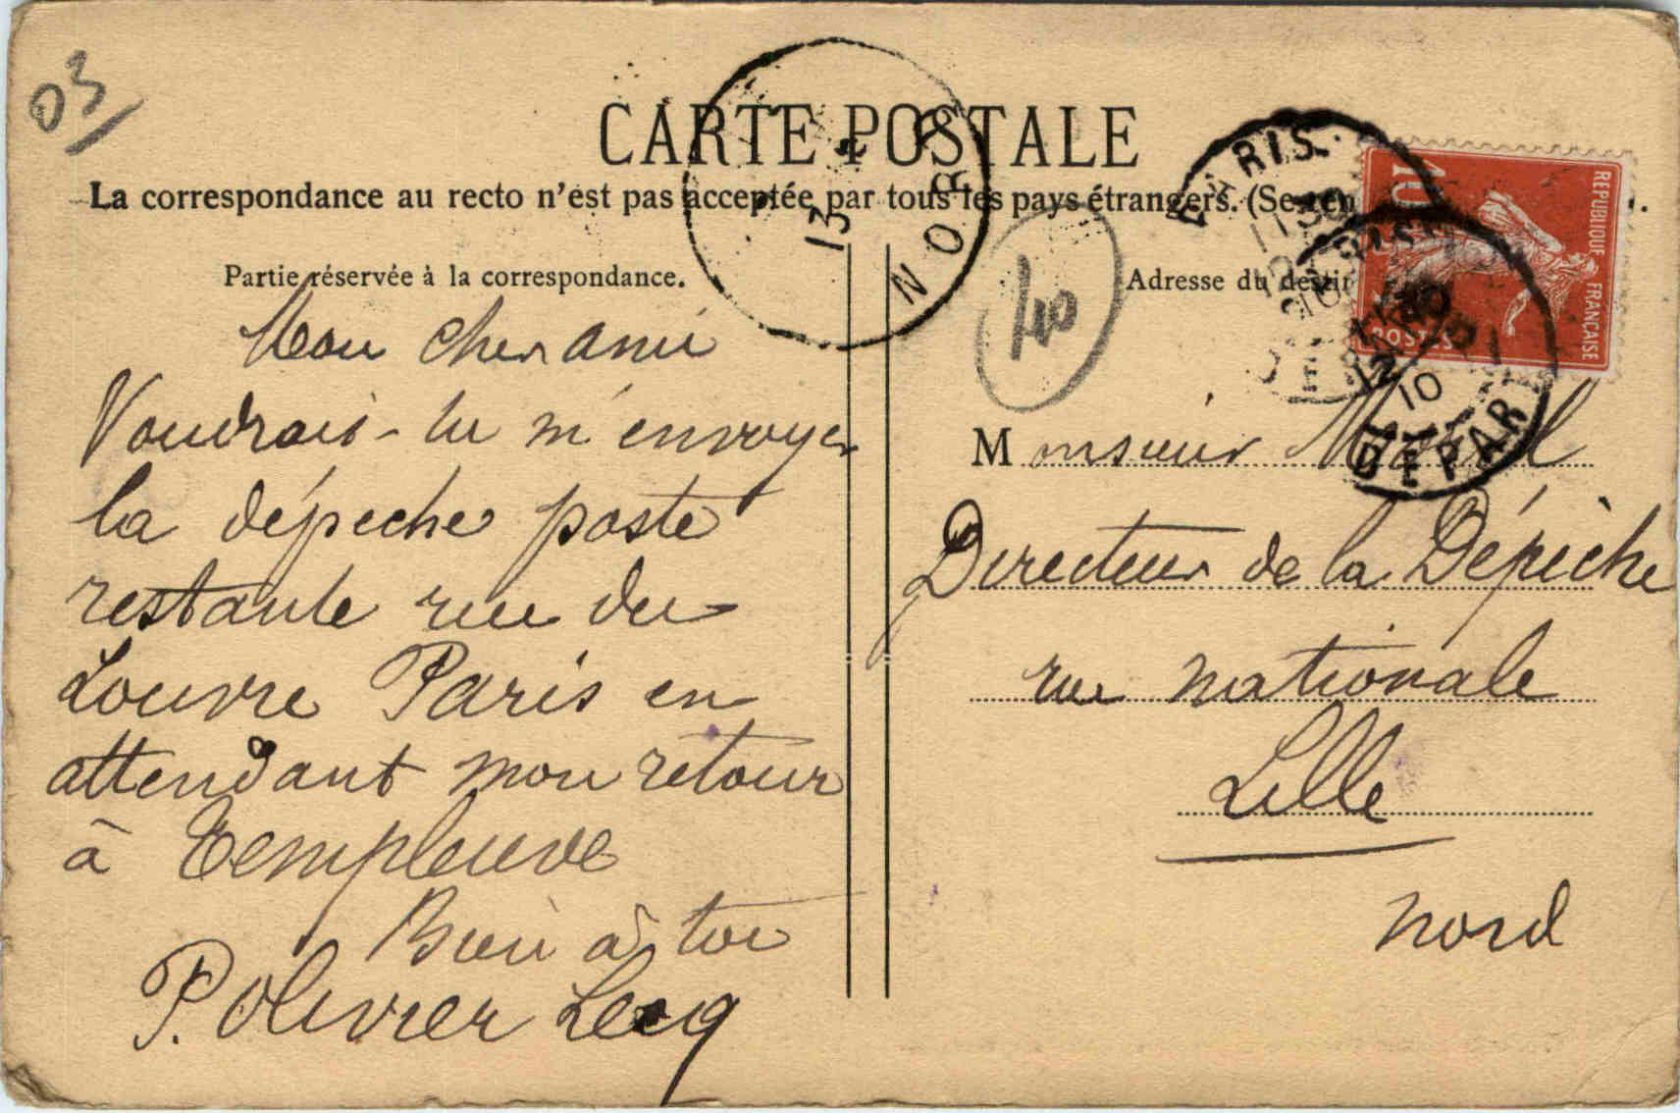 03
CARTE POSTALE
La correspondance au recto n'est pas acceptée par tous les pays étrangers. (Se ren
Partie réservée à la correspondance.
Mon cher ami
Voudrais-tu m'envoyer
la dépeche poste
restante rue du
Louvre Paris en
attendant mon retour
à Templeuve
Bien à toi
P. Olivier Lecq
13
NORD
40
Adresse du destin
PARIS
10
DEPART
REPUBLIQUE FRANÇAISE
POSTES
10
Monsieur
Directeur de la Dépêche
rue nationale
Lille
Nord